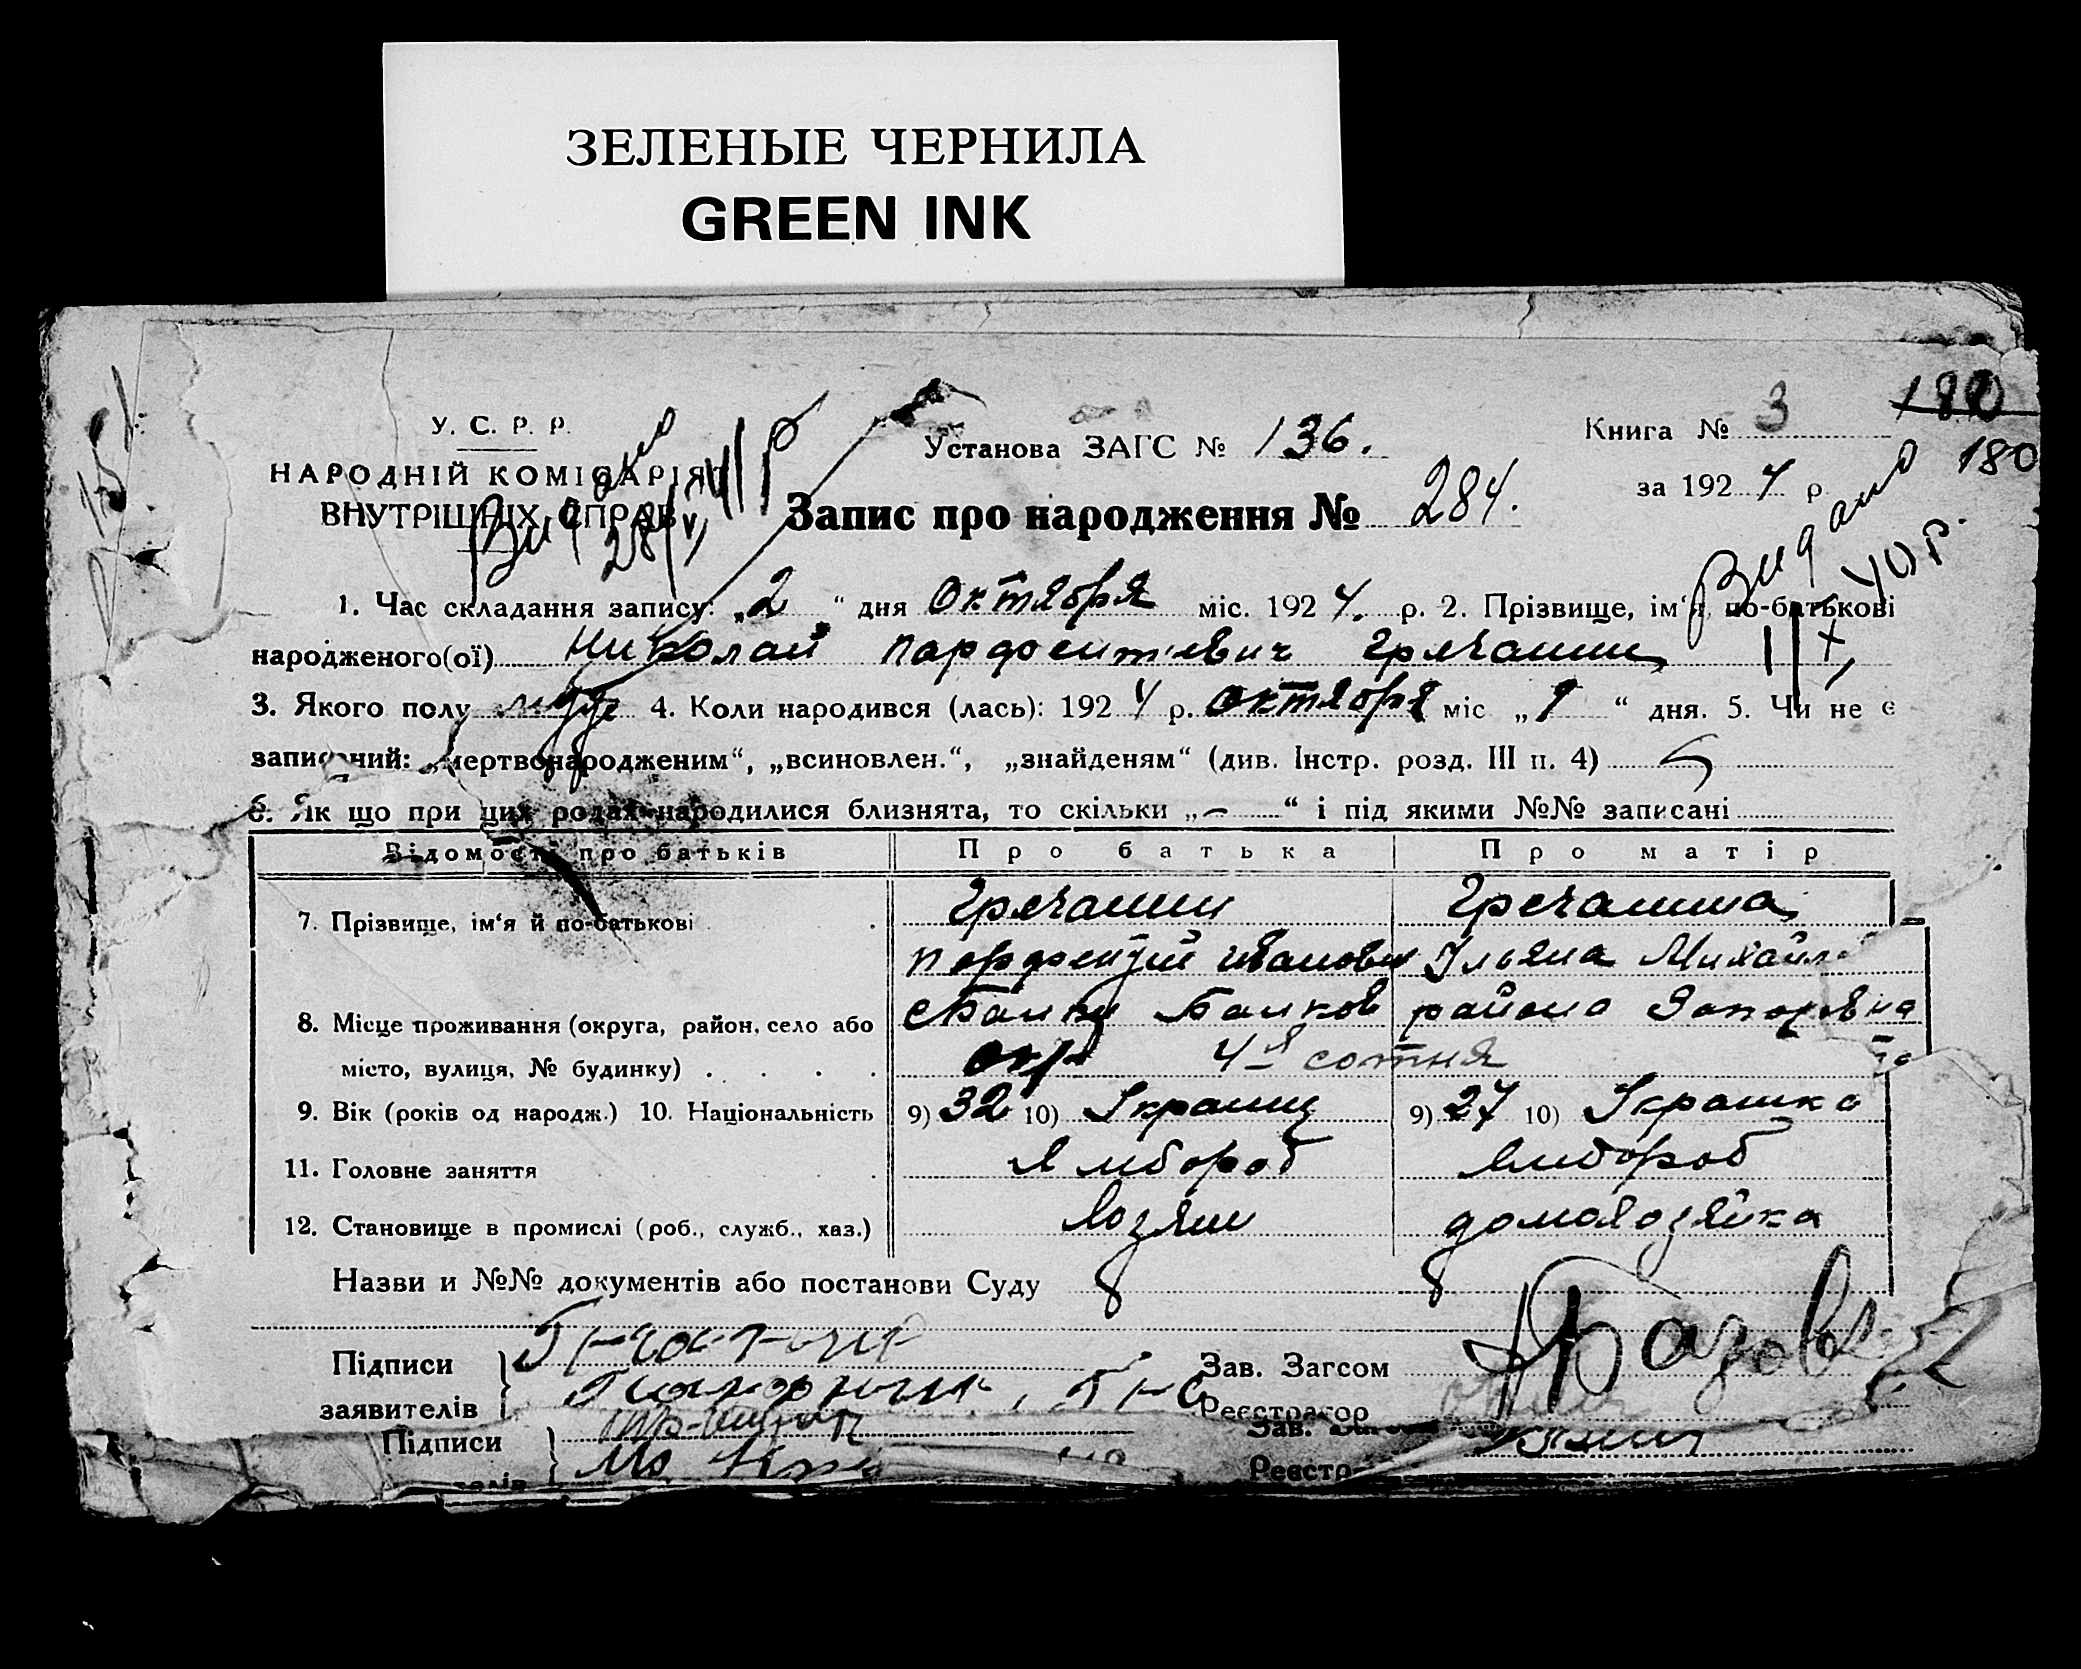 ЗЕЛЕНЫЕ ЧЕРНИЛА
GREEN INK
У. С. Р. Р.
НАРОДНІЙ КОМІСАРІЯТ
ВНУТРІШНІХ СПРАВ
Видано
28/V
41 р
Установа ЗАГС № 136.
Книга № 3
180
180
за 1924 р
Видано
Запис про народження № 284.
40 р.
1. Час складання запису: „2“ дня Октября міс. 1924. р. 2. Прізвище, ім‘я, по-батькові
народженого(ої) Николай Парфентиевич Гречанин
3. Якого полу 4. Коли народився (лась): 1924 р. Октября міс „1“ дня. 5. Чи не є
записаний: „мертвонародженим“, „всиновлен.“, „знайденям“ (див. Інстр. розд. III п. 4)
6. Як що при цих родах народилися близнята, то скільки „–“ і під якими №№ записані
Відомості про батьків Про батька Про матір
7. Прізвище, ім‘я й по-батькові Гречанин Гречанина
Парфентий Иванович Ульяна Михайл
8. Місце проживання (округа, район, село або с Балки Балков района Запорожск
місто, вулиця, № будинку) окр 4я сотня
9. Вік (років од народж.) 10. Національність 9) 32 10) Украинц 9) 27 10) Украинка
11. Головне заняття Хлібороб Хлібороб
12. Становище в промислі (роб., служб., хаз.) Хозяин домохозяйка
Назви и №№ документів або постанови Суду
Підписи
Зав. Загсом
заявителів
Реєстратор
Підписи
Зав.
Реєстр